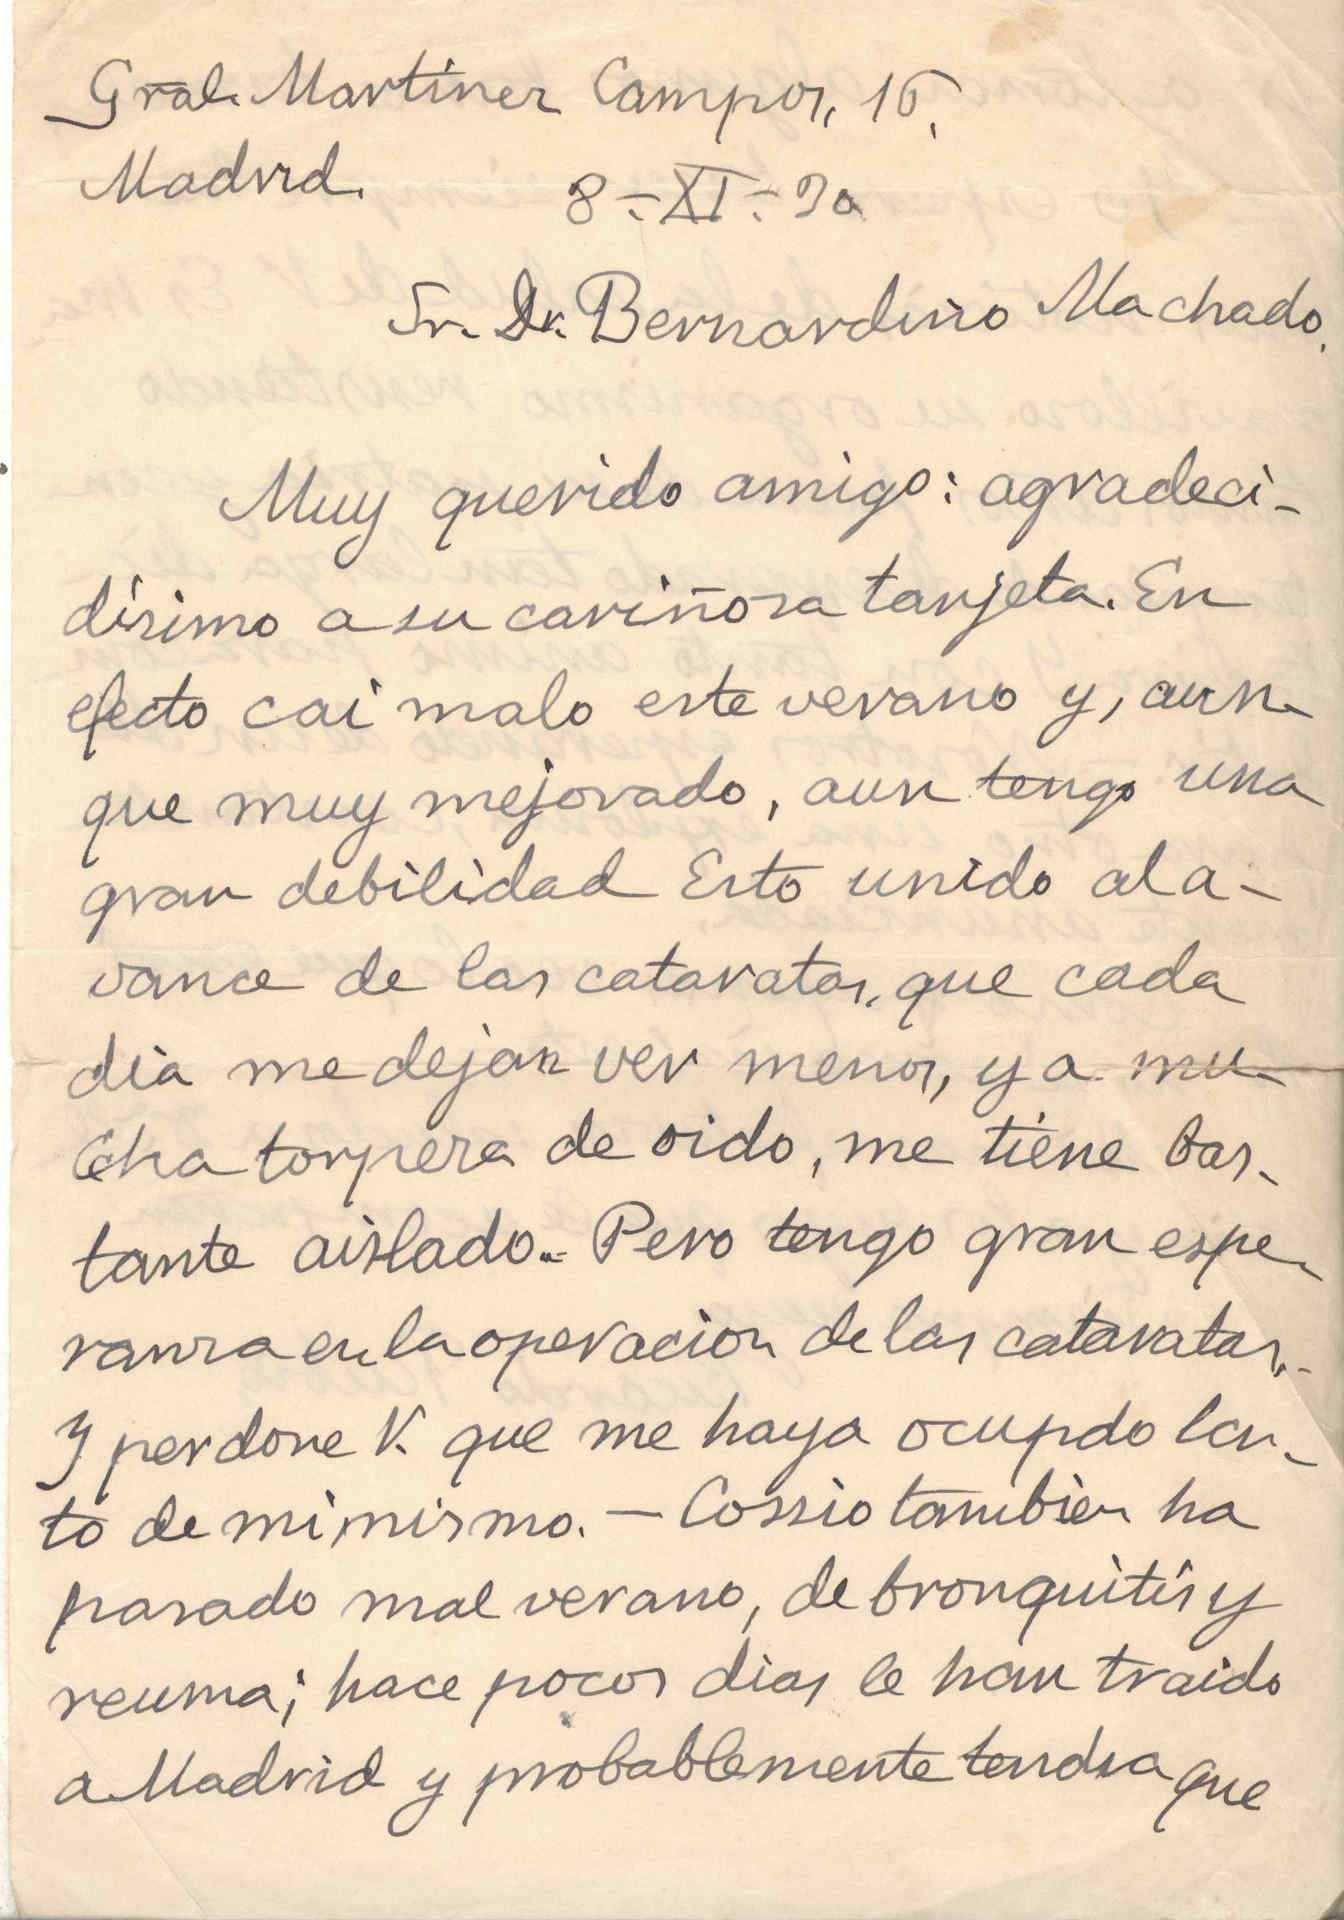 Gral. Martinez Campos, 16.
Madrid. 8-XI-30
Sr. Dr. Bernardino Machado.
Muy querido amigo: agradeci-
dísimo a su cariñosa tarjeta. En
efecto cai malo este verano y, aun-
que muy mejorado, aun tengo una
gran debilidad Esto unido al a-
vance de las cataratas, que cada
dia me dejan ver menos, y a mu-
cha torpeza de oido, me tiene bas-
tante aislado.- Pero tengo gran espe-
ranza en la operacion de las cataratas.-
Y perdone V. que me haya ocupdo tan-
to de mi mismo. - Cossio tambien ha
pasado mal verano, de bronquitis y
reuma; hace pocos dias le han traido
a Madrid y probablemente tendra que